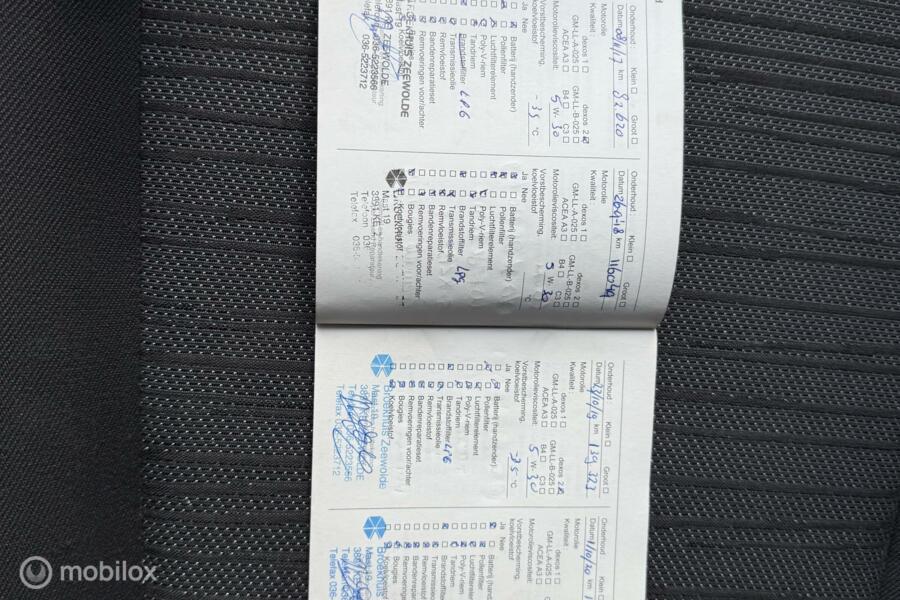 Onderhoud: Klein □ Groot □
Datum km 82620
Motorolie
Kwaliteit: dexos 1 □ dexos 2
GM-LL-A-025 □ GM-LL-B-025 □
ACEA A3 □ B4 □ C3 □
Motorolieviscositeit: 5 W- 30
Vorstbescherming.
koelvloeistof -35 °C
Ja Nee
Batterij (handzender)
Pollenfilter
Luchtfilterelement
Poly-V-riem
Tandriem
Brandstoffilter LPG
Transmissieolie
Remvloeistof
Bandenreparatieset
Remvoeringen voor/achter
ZEEWOLDE
036-5223566
036-5223712
Onderhoud: Klein □ Groot □
Datum 26-9-18 km 116049
Motorolie
Kwaliteit: dexos 1 □ dexos 2 □
GM-LL-A-025 □ GM-LL-B-025 □
ACEA A3 □ B4 □ C3 □
Motorolieviscositeit: 5 W- 30
Vorstbescherming.
koelvloeistof °C
Ja Nee
Batterij (handzender)
Pollenfilter
Luchtfilterelement
Poly-V-riem
Tandriem
Brandstoffilter LPG
Transmissieolie
Remvloeistof
Bandenreparatieset
Remvoeringen voor/achter
Bougies
Koelvloeistof
Mast 19
Telefoon 036
Telefax 036
Onderhoud Klein □ Groot □
Datum km 139 323
Motorolie
Kwaliteit dexos 1 □ dexos 2
GM-LL-A-025 □ GM-LL-B-025 □
ACEA A3 □ B4 □ C3 □
Motorolieviscositeit: 5 W- 30
Vorstbescherming.
koelvloeistof -35 °C
Ja Nee
Batterij (handzender)
Pollenfilter
Luchtfilterelement
Poly-V-riem
Tandriem
Brandstoffilter LPG
Transmissieolie
Remvloeistof
Bandenreparatieset
Remvoeringen voor/achter
Bougies
Koelvloeistof
Broekhuis Zeewolde
Mast 19
Telefax
Onderhoud Klein
Datum 1/10/20 km 1
Motorolie
Kwaliteit dexos 1 □
GM-LL-A-025 □
ACEA A3 □
Motorolieviscositeit:
Vorstbescherming.
koelvloeistof
Ja Nee
Batterij (handzender)
Pollenfilter
Luchtfilterelement
Poly-V-riem
Tandriem
Brandstoffilter
Transmissieolie
Remvloeistof
Bandenrepa
Remvoeringen
Bougies
Koelvloeistof
Broekhuis
Mast 19
Telefax 036-
mobilox